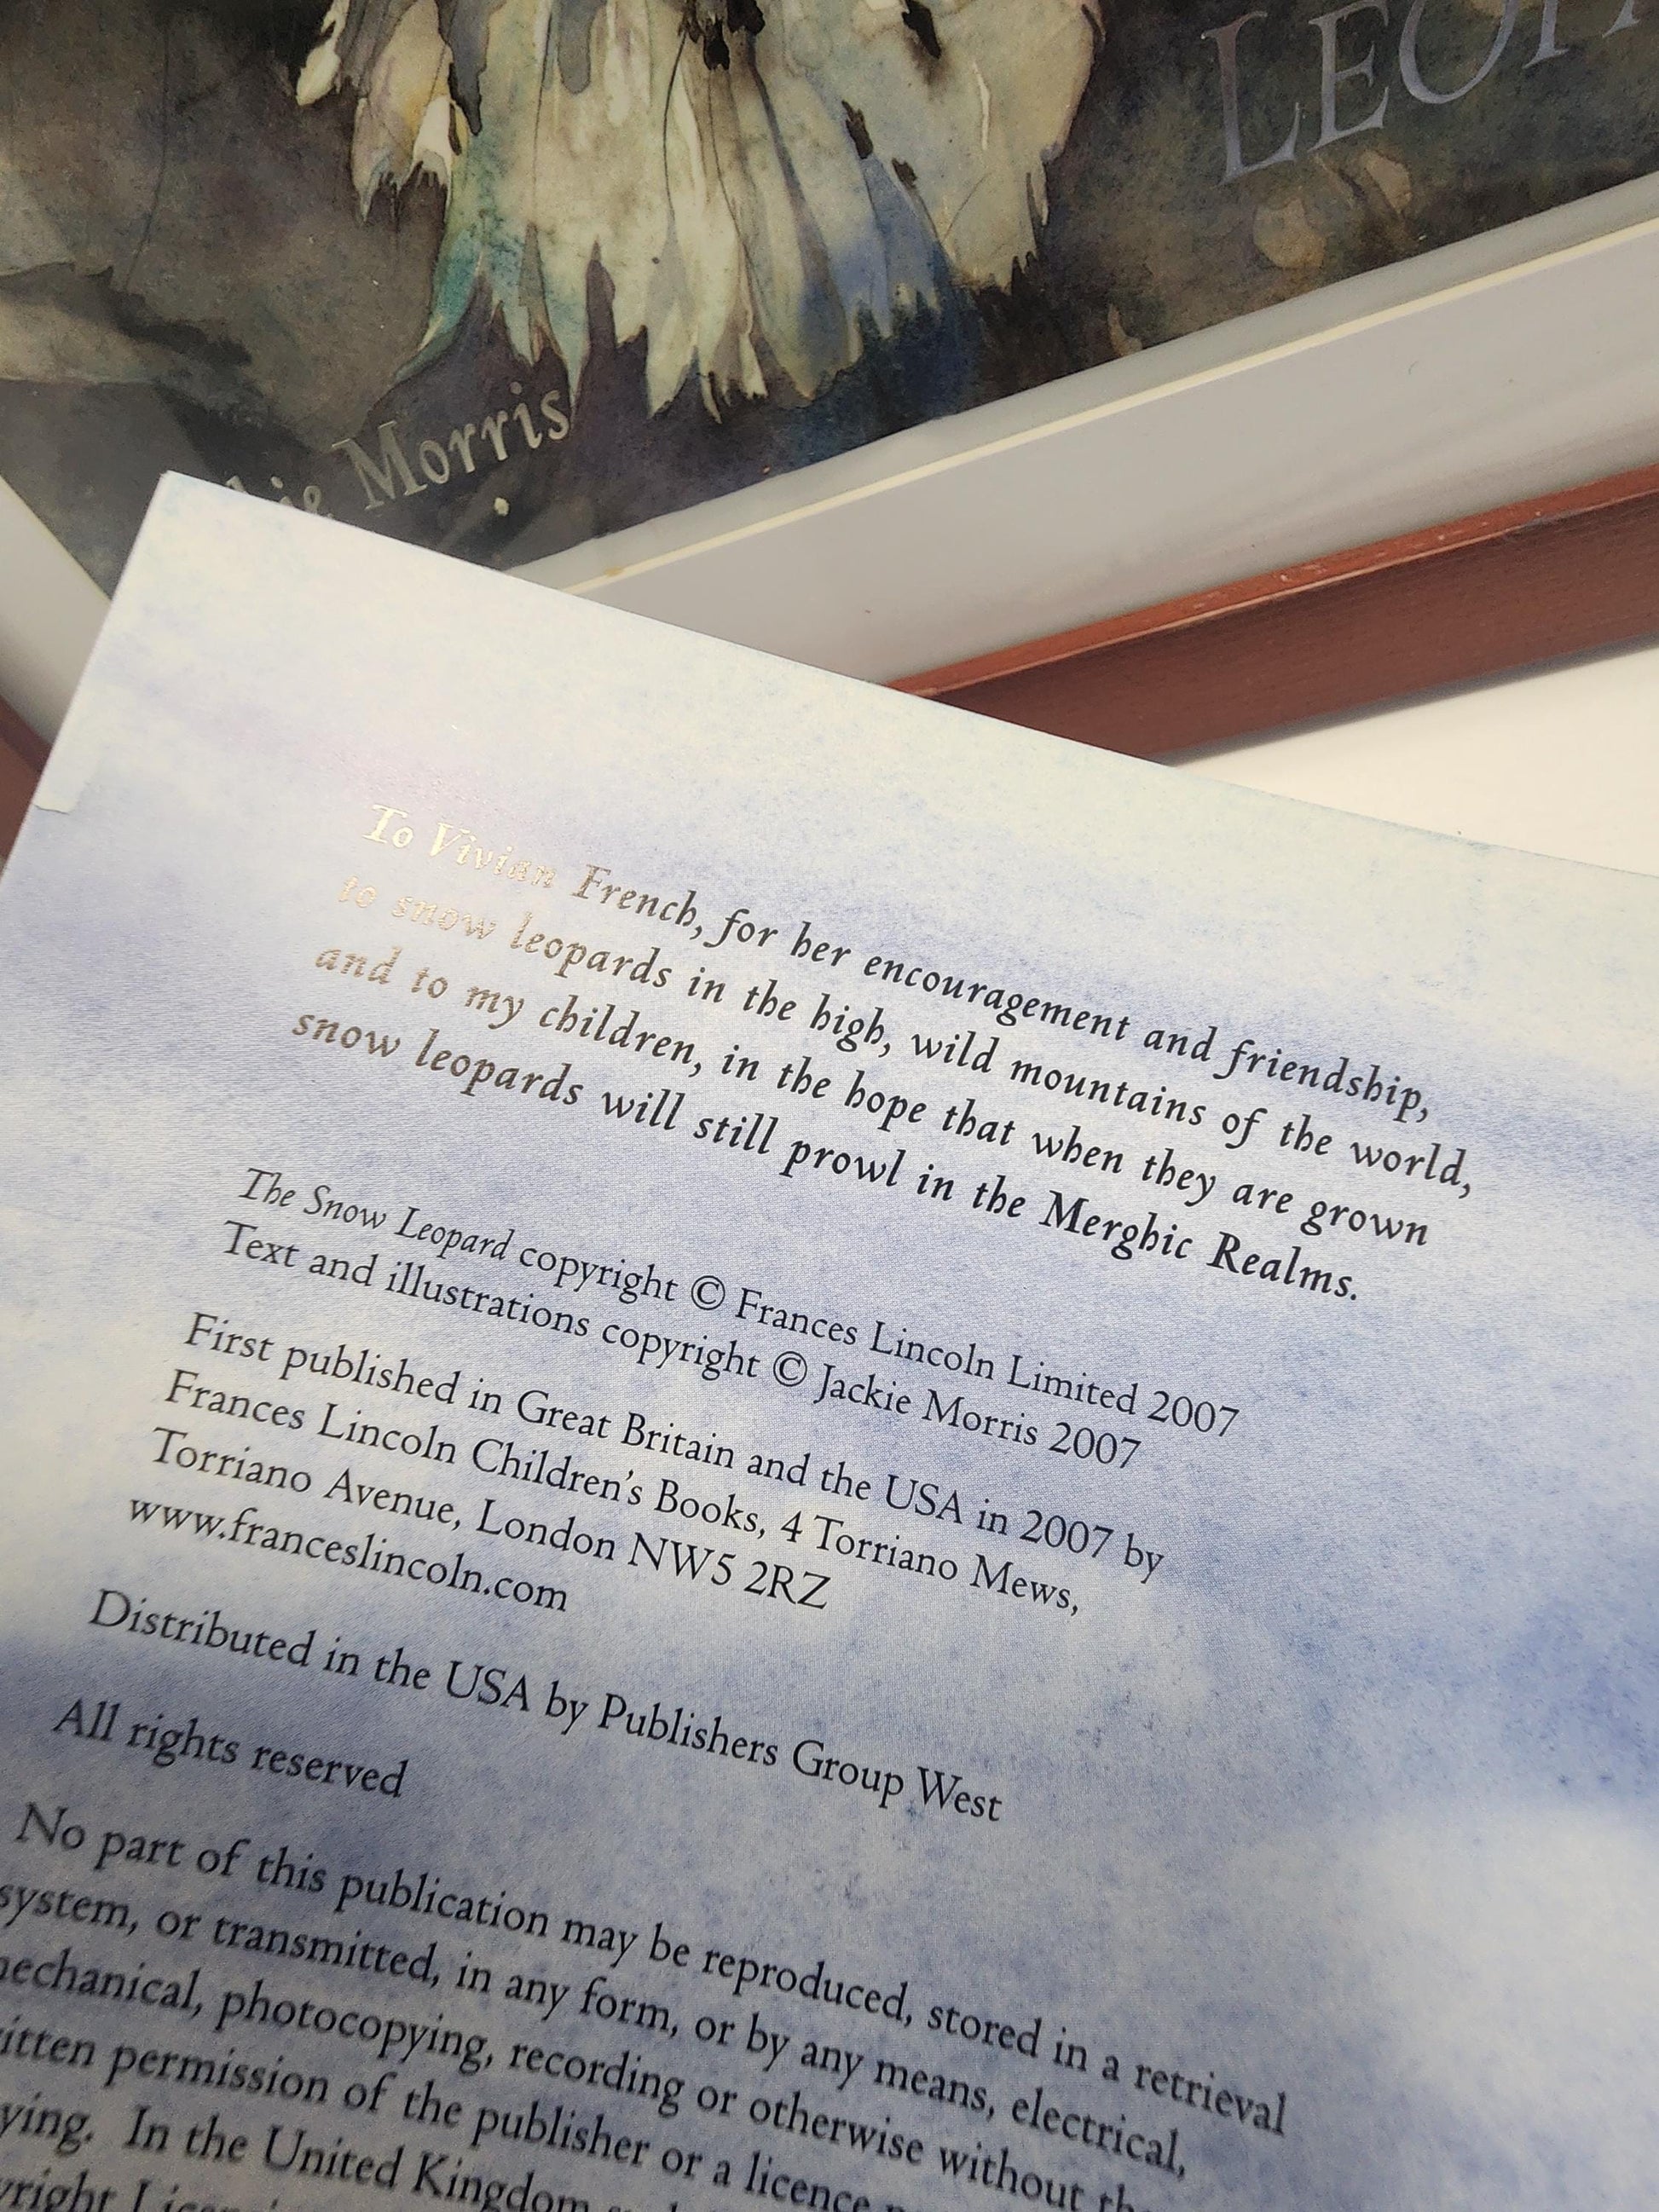 LEOPA
kie Morris
To Vivian French, for her encouragement and friendship,
to snow leopards in the high, wild mountains of the world,
and to my children, in the hope that when they are grown
snow leopards will still prowl in the Merghic Realms.
The Snow Leopard copyright © Frances Lincoln Limited 2007
Text and illustrations copyright © Jackie Morris 2007
First published in Great Britain and the USA in 2007 by
Frances Lincoln Children's Books, 4 Torriano Mews,
Torriano Avenue, London NW5 2RZ
www.franceslincoln.com
Distributed in the USA by Publishers Group West
All rights reserved
No part of this publication may be reproduced, stored in a retrieval
system, or transmitted, in any form, or by any means, electrical,
mechanical, photocopying, recording or otherwise without
itten permission of the publisher or a licence
ying. In the United Kingdom
yright